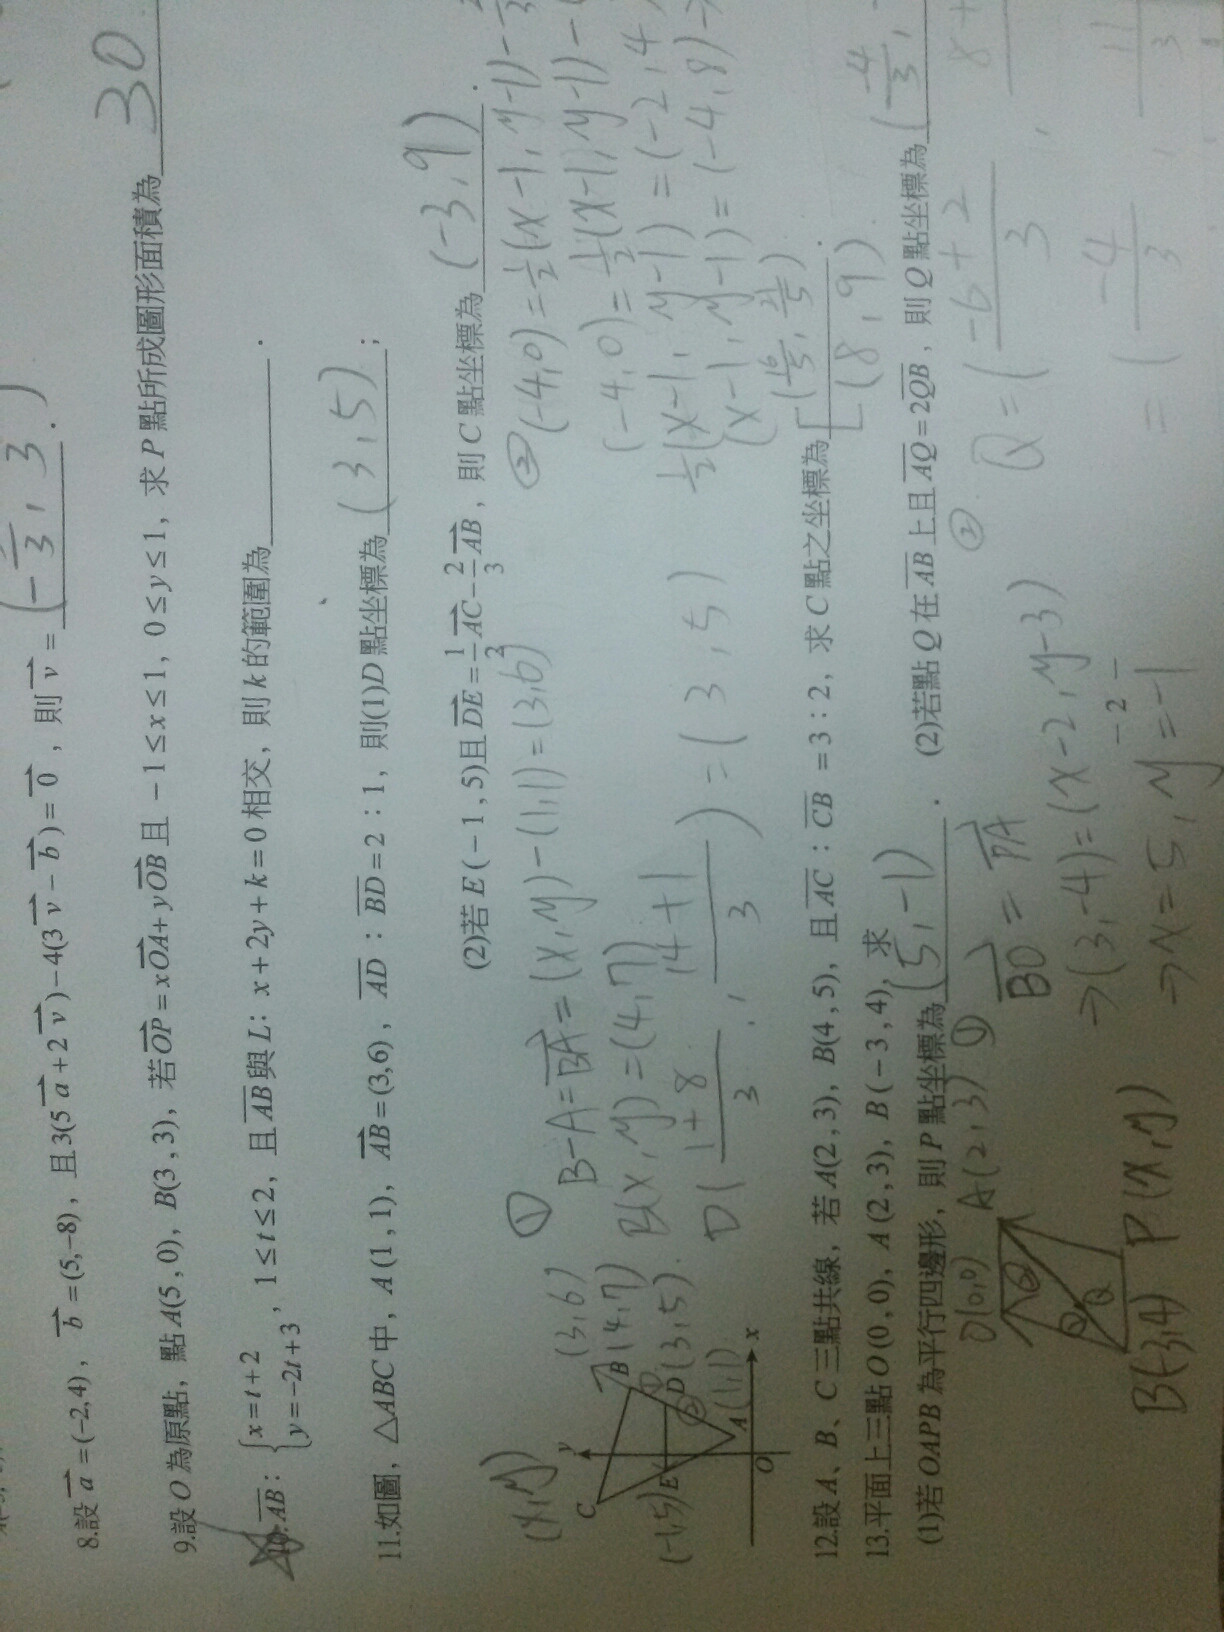 8.設 a = (-2,4), b = (5,-8), 且 3(5a + 2v) - 4(3v - b) = 0, 則 v = (-1/3, 3).
9.設 O 為原點, 點 A(5, 0), B(3, 3), 若 OP = xOA + yOB 且 -1 ≤ x ≤ 1, 0 ≤ y ≤ 1, 求 P 點所成圖形面積為 30
10. AB: { x = t + 2
y = -2t + 3 , 1 ≤ t ≤ 2, 且 AB 與 L: x + 2y + k = 0 相交, 則 k 的範圍為 .
11.如圖, △ABC 中, A(1, 1), AB = (3,6), AD : BD = 2 : 1, 則(1)D 點坐標為 (3, 5) ;
(2)若 E(-1, 5)且 DE = 1/2 AC - 2/3 AB, 則 C 點坐標為 (-3, 9) .
(x,y)
(3,6)
C
y
B (4,7)
(-1,5) E
D (3,5)
A (1,1)
O
x
① B-A = BA = (x,y)-(1,1) = (3,6)
B(x,y) = (4,7)
D( 1+8/3 , 14+1/3 ) = (3,5)
② (-4,0) = 1/2(x-1, y-1) -
(-4,0) = 1/2(x-1, y-1) -
1/2(x-1, y-1) = (-2, 4
(x-1, y-1) = (-4, 8) →
12.設 A、B、C 三點共線, 若 A(2, 3), B(4, 5), 且 AC : CB = 3 : 2, 求 C 點之坐標為 (16/5, 21/5) .
(8, 9)
13.平面上三點 O(0, 0), A(2, 3), B(-3, 4), 求
(1)若 OAPB 為平行四邊形, 則 P 點坐標為 (5, -1) . (2)若點 Q 在 AB 上且 AQ = 2QB, 則 Q 點坐標為 (-4/3,
O(0,0) A(2,3)
B(-3,4) P(x,y)
① BO = PA
→ (3,-4) = (x-2, y-3)
→ x = 5, y = -1
② Q = ( -6+2/3 , 8+
= ( -4/3 , 11/3